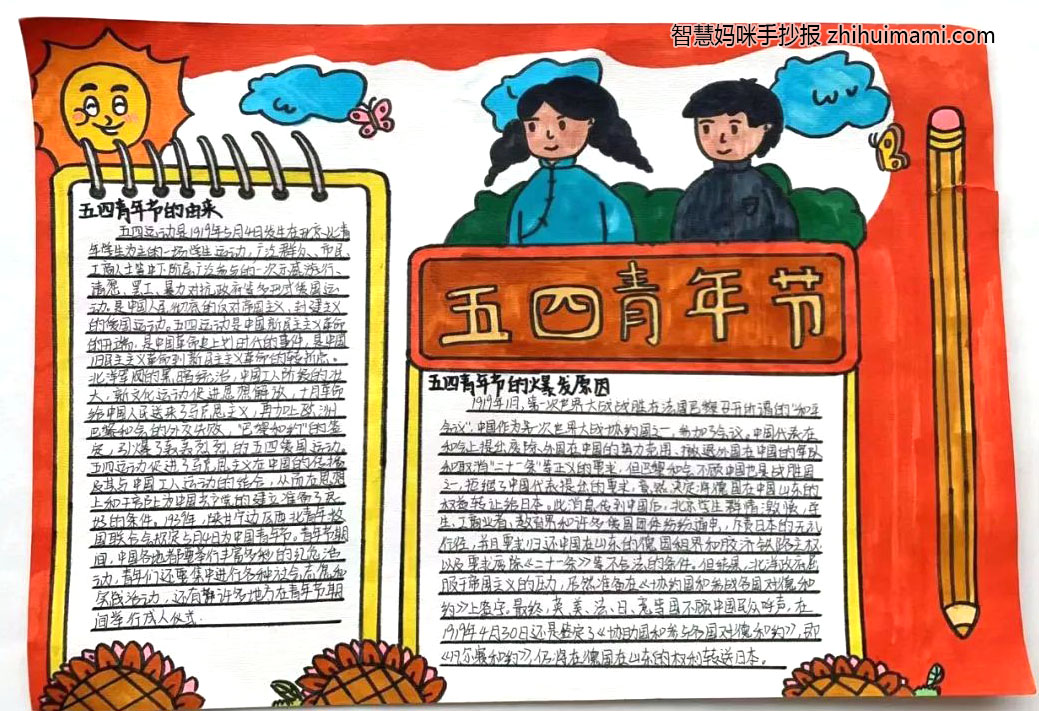 智慧妈咪手抄报 zhihuimami.com
五四青年节的由来
五四运动是1919年5月4日发生在北京以青
年学生为主的一场学生运动,广泛群众、市民、
工商人士等中下阶层广泛参与的一次示威游行、
请愿、罢工、暴力对抗政府等多形式爱国运
动。是中国人民彻底的反对帝国主义、封建主义
的爱国运动。五四运动是中国新民主主义革命
的开端,是中国革命史上划时代的事件,是中国
旧民主主义革命到新民主主义革命的转折点。
北洋军阀的黑暗统治,中国工人阶级的壮
大,新文化运动促进思想解放,十月革命
给中国人民送来了马克思主义,再加上欧洲
巴黎和会的外交失败,"巴黎和约"的签
定,引爆了轰轰烈烈的五四爱国运动。
五四运动促进了马克思主义在中国的传播
及其与中国工人运动的结合,从而在思想
上和干部上为中国共产党的建立准备了良
好的条件。1939年,陕甘宁边区西北青年救
国联合会规定5月4日为中国青年节。青年节期
间,中国各地都要举行丰富多彩的纪念活
动,青年们还要集中进行各种社会志愿和
实践活动,还有许多地方在青年节期
间举行成人仪式.
五四青年节
五四青年节的爆发原因
1919年1月,第一次世界大战战胜在法国巴黎召开所谓的"和平
会议",中国作为第一次世界大战协约国之一,参加了会议。中国代表在
和会上提出废除外国在中国的势力范围、撤退外国在中国的军队
和取消"二十一条"等正义的要求,但巴黎和会不顾中国也是战胜国
之一,拒绝了中国代表提出的要求,竟然决定将德国在中国山东的
权益转让给日本。此消息传到中国后,北京学生群情激愤,学
生、工商业者、教育界和许多爱国团体纷纷通电,斥责日本的无礼
行径,并且要求归还中国在山东的德国租界和胶济铁路主权
以及要求废除《二十一条》等不合法的条件。但结果,北洋政府屈
服于帝国主义的压力,居然准备在《协约国和参战各国对德和
约》上签字。最终,英、美、法、日、意等国不顾中国民众呼声,在
1919年4月30日还是签定了《协助国和参与各国对德和约》,即
《凡尔赛和约》,仍将在德国在山东的权利转送日本。